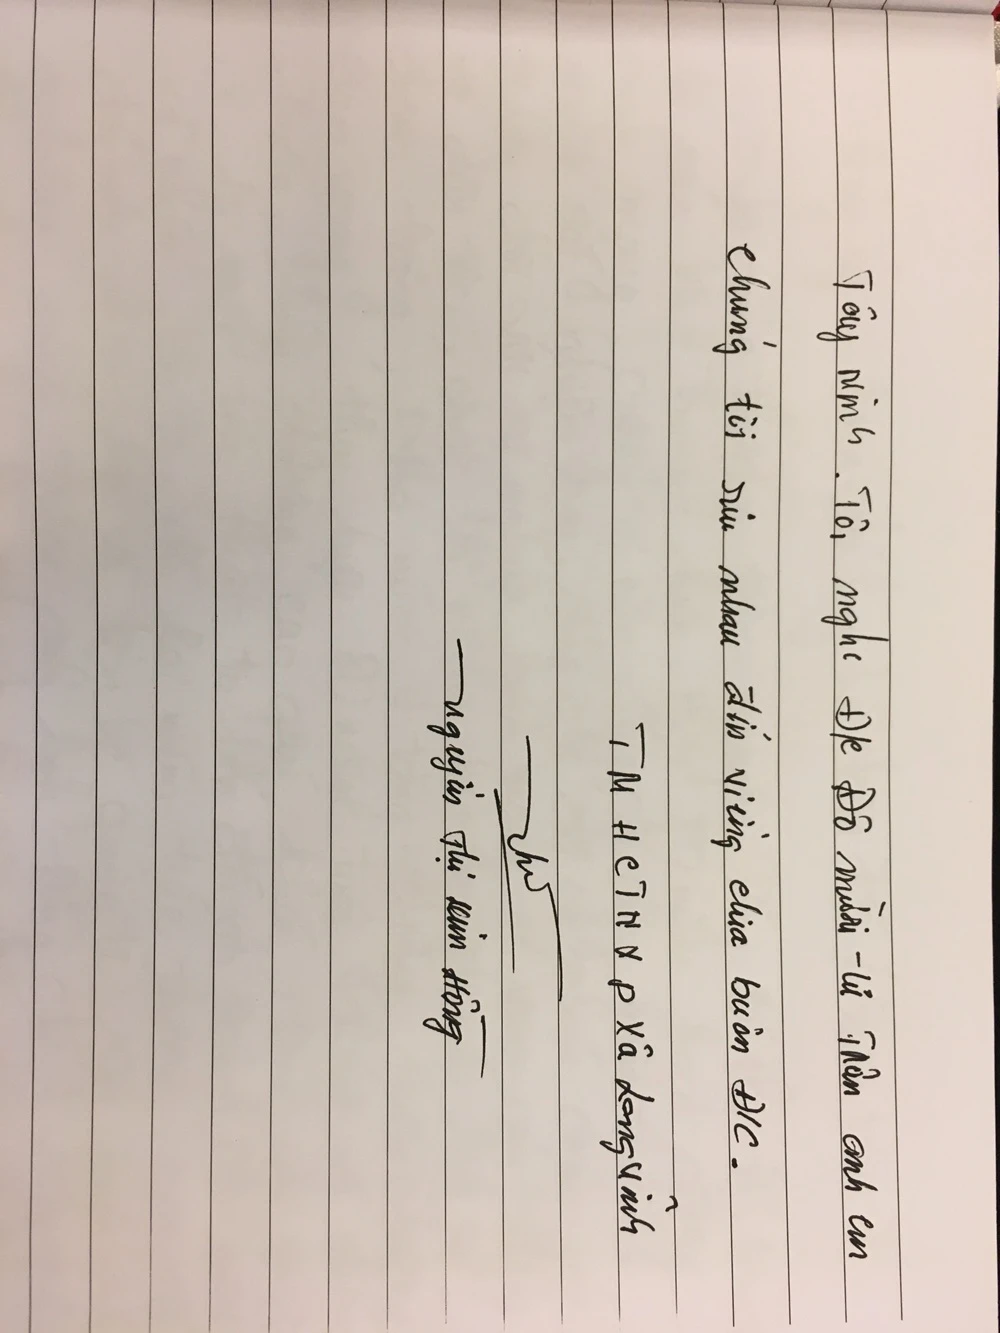 Tây Ninh. Tôi nghe Đ/c Đỗ Mười - từ Trần anh em
chúng tôi rủ nhau đến viếng chia buồn Đ/C.
TM HCTNNP Xã Long Vĩnh
Nguyễn Thị Kim Hồng